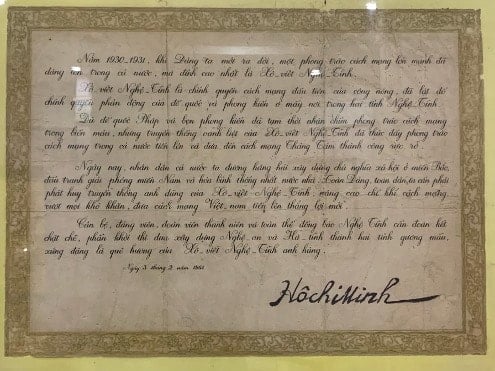 Năm 1930-1931, khi Đảng ta mới ra đời, một phong trào cách mạng lớn mạnh đã
dâng lên trong cả nước, mà đỉnh cao nhất là Xô-viết Nghệ-Tĩnh.
Xô-viết Nghệ-Tĩnh là chính quyền cách mạng đầu tiên của công nông, đã lật đổ
chính quyền phản động của đế quốc và phong kiến ở mấy nơi trong hai tỉnh Nghệ-Tĩnh.
Dù đế quốc Pháp và bọn phong kiến đã tạm thời nhận chìm phong trào cách mạng
trong biển máu, nhưng truyền thống oanh liệt của Xô-viết Nghệ-Tĩnh đã thúc đẩy phong trào
cách mạng trong cả nước tiến lên và đưa đến cách mạng Tháng Tám thành công rực rỡ.
Ngày nay, nhân dân cả nước ta đương hăng hái xây dựng chủ nghĩa xã hội ở miền Bắc,
đấu tranh giải phóng miền Nam và hòa bình thống nhất nước nhà. Toàn Đảng, toàn dân, ta cần phải
phát huy truyền thống anh dũng của Xô-viết Nghệ-Tĩnh, nâng cao chí khí cách mạng,
vượt mọi khó khăn, đưa cách mạng Việt-nam tiến lên thắng lợi mới.
Cán bộ, đảng viên, đoàn viên thanh niên và toàn thể đồng bào Nghệ Tĩnh cần đoàn kết
chặt chẽ, phấn khởi thi đua xây dựng Nghệ-an và Hà-tĩnh thành hai tỉnh gương mẫu,
xứng đáng là quê hương của Xô-viết Nghệ-Tĩnh anh hùng.
Ngày 3 tháng 2 năm 1964
HồChíMinh